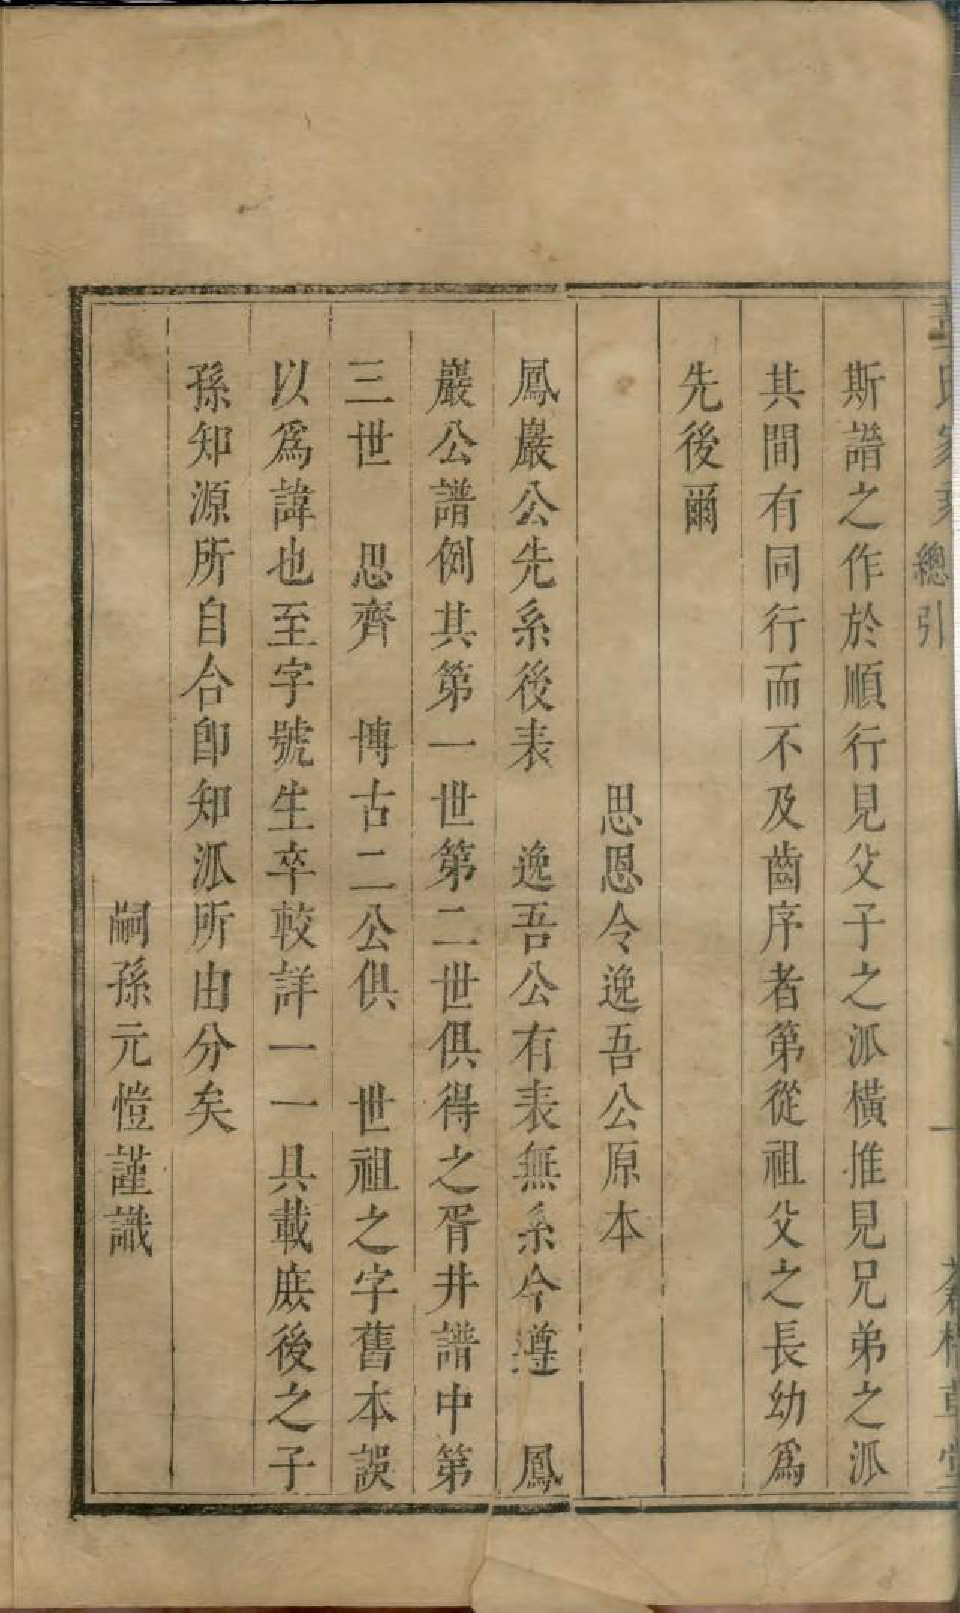 總引
一
斯譜之作於順行見父子之派橫推見兄弟之派
其間有同行而不及齒序者第從祖父之長幼爲
先後爾
思恩令逸吾公原本
鳳巖公先系後表　逸吾公有表無系今遵　鳳
巖公譜例其第一世第二世俱得之胥井譜中第
三世　思齊　博古二公俱　世祖之字舊本誤
以爲諱也至字號生卒較詳一一具載庶後之子
孫知源所自合卽知派所由分矣
嗣孫元愷謹識